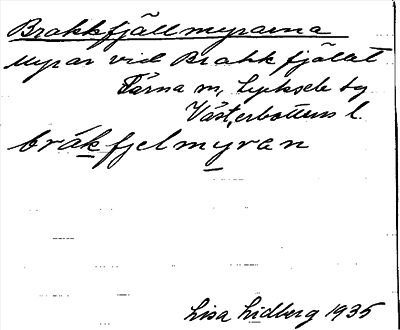 Brakkfjällmyrarna
Myrar vid Brakkfjället
Tärna sn, Lycksele tg
Västerbottens l.
bråkfjelmyran
Lisa Lidberg 1935